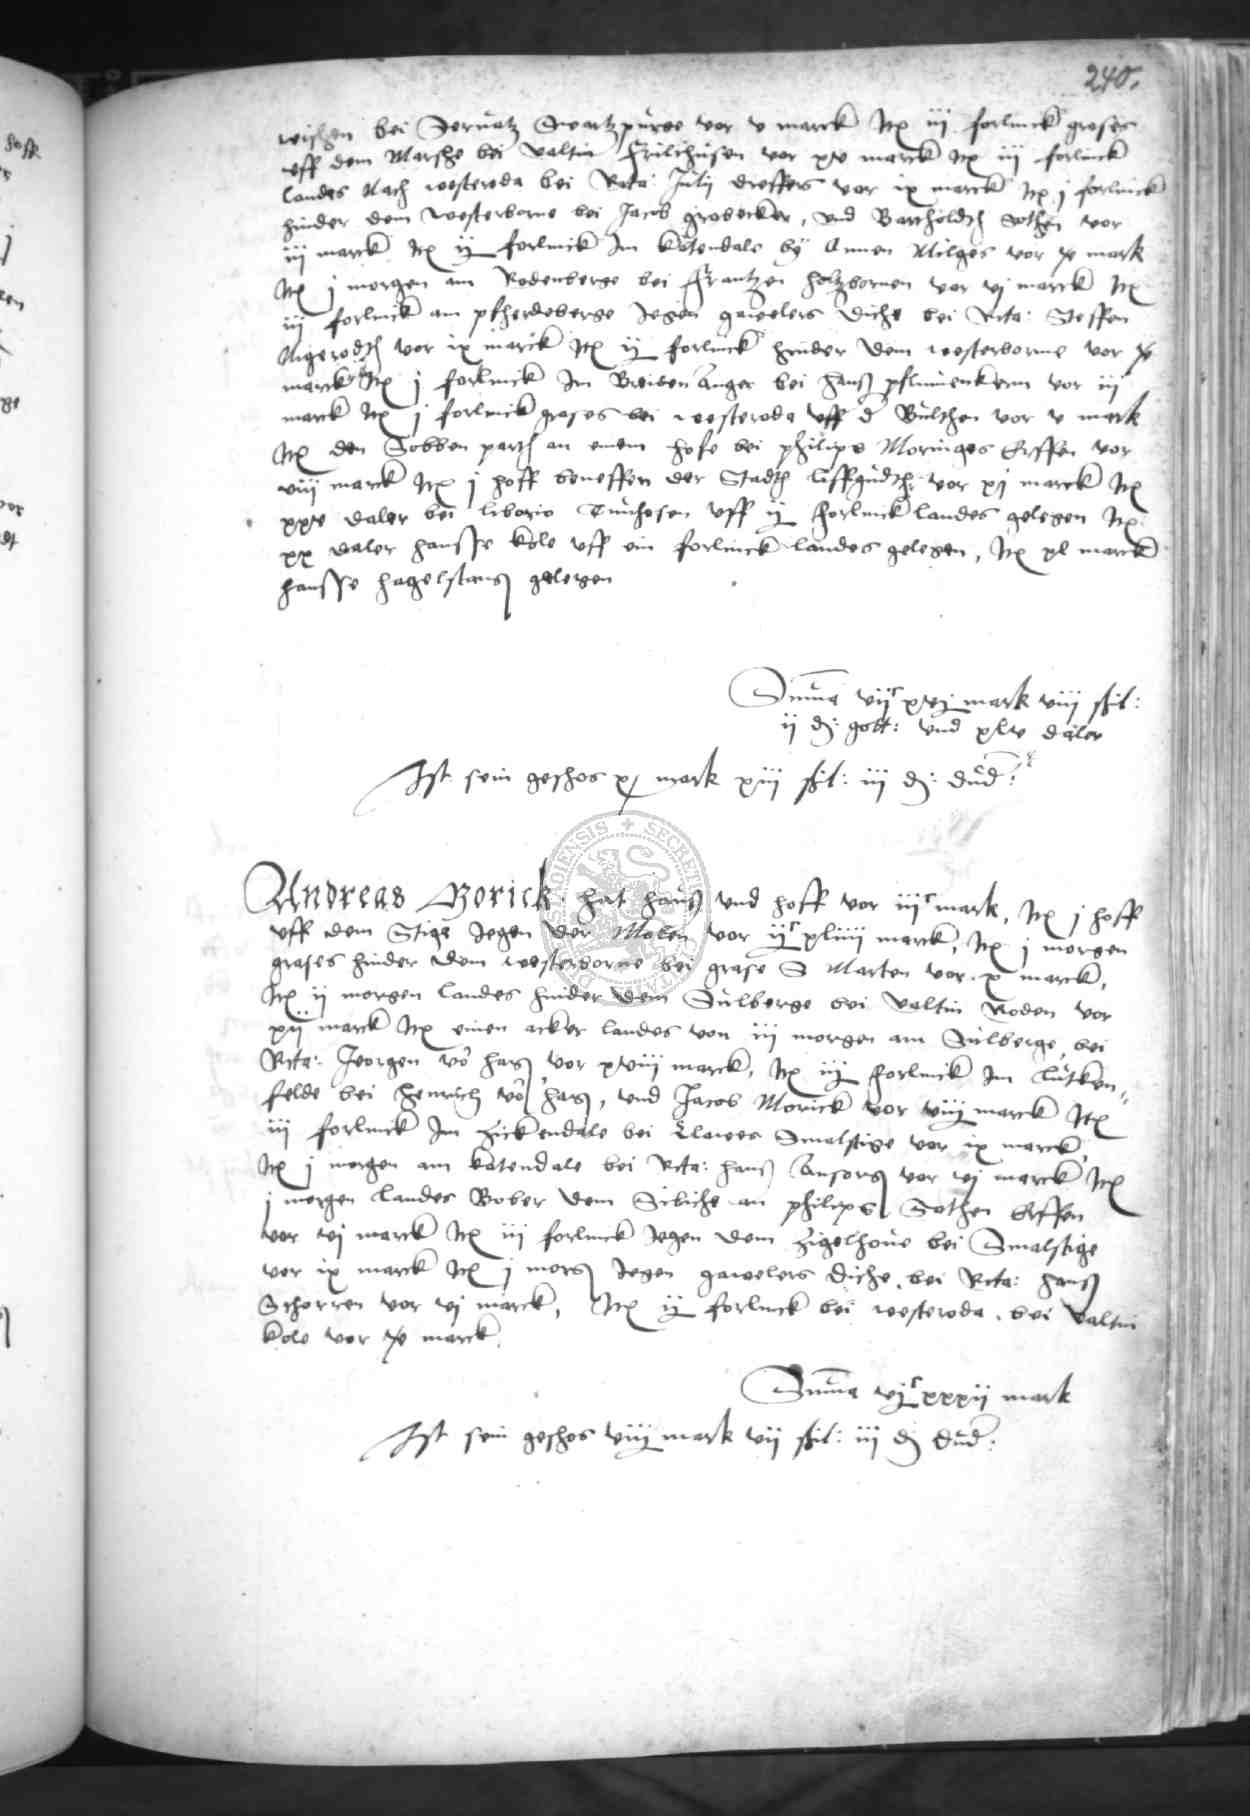 240.
wischen bei Servatz Swartzpurge vor v marck Itz iij forlinck grases
uff dem Marshe bei valtin Hrilthusen vor xv marck Itz iij forlinck
landes Nach westeroda bei Rcta: Julij dreffers vor ix marck Itz j forlinck
hinder dem westerborne bei Jacob grobecker, vnd Bartholdth Sothen vor
iij marck Itz ij forlinck Im katendale by Annen Milges vor x mark
Itz j morgen am Rodenberge bei Frantzen holtzbornen vor vj marck Itz
iij forlinck am pfherdeberge Jegen gawelers diche bei Rcta: Steffen
Algerodth vor ix marck Itz ij forlinck hinder dem westerborne vor x
marck Itz j forlinck Im Breiden Anger bei hans pflumenkern vor iij
marck Itz j forlinck grases bei westeroda uff d Bulthen vor v mark
Itz den Sobben parth an einem hofe bei philips Moringes Erffen vor
viij marck Itz j hoff beneffen der Stadth vor xj marck Itz
xxv daler bei liborio Tunhosen uff ij forlinck landes gelegen Itz
xx daler Hansse kole uff ein forlinck landes gelegen, Itz xl marck
hansse hagelstang gelegen
Suma vijc xvj mark viij schil:
ij d: gott: vnd xlv daler
Ist sein geschos x mark xiij schil: iij d: dud:
Andreas Borick hat haus vnd hoff vor iijc mark, Itz j hoff
uff dem Stige Jegen der Molen vor ijc xliiij marck, Itz j morgen
grases hinder dem westerborne bei grase S Marten vor x marck,
Itz ij morgen landes hinder dem Sulberge bei valtin Roden vor
xij marck Itz einen acker landes von iij morgen am Sulberge bei
Rcta: Jeorgen vo hag vor xviij marck, Itz iij forlinck Im lutken
felde bei Henrich vo hag, vnd Jacob Morick vor viij marck Itz
iij forlinck Im zickendale bei Clawes Smalstige vor ix marck,
Itz j morgen am katendale bei Rcta: hans Ansorg vor vj marck Itz
j morgen landes Bober dem Siliche an philips Sothen Erffen
vor vj marck Itz iij forlinck Jegen dem zigelhove bei Smalstige
vor ix marck Itz j morg Jegen gawelers diche, bei Rcta: hans
Schorren vor vj marck, Itz ij forlinck bei westeroda, bei Valtin
kole vor x marck
Suma vjc xxxij mark
Ist sein geschos viij mark vij schil: iij d dud: